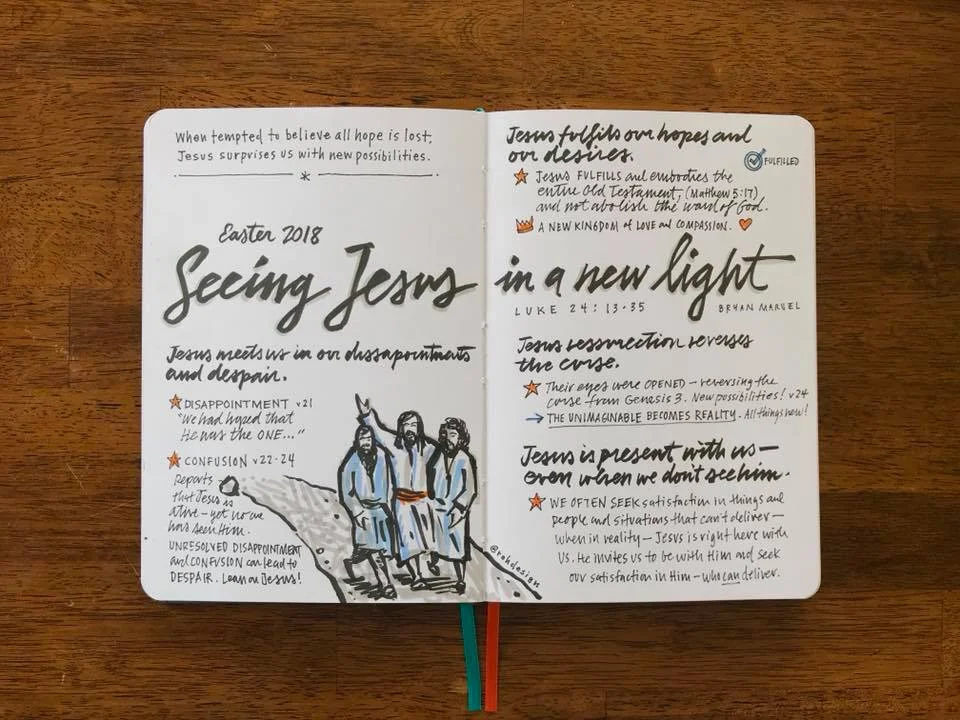 When tempted to believe all hope is lost,
Jesus surprises us with new possibilities.
Easter 2018
Seeing Jesus in a new light
LUKE 24:13-35
BRYAN MARVEL
Jesus meets us in our dissapointments
and despair.
DISAPPOINTMENT v21
"We had hoped that
He was the ONE..."
CONFUSION v22-24
Reports
that Jesus is
alive - yet no one
has seen Him.
UNRESOLVED DISAPPOINTMENT
and CONFUSION can lead to
DESPAIR. Lean on Jesus!
@rohdesign
Jesus fulfils our hopes and
our desires.
FULFILLED
Jesus FULFILLS and embodies the
entire Old Testament, (Matthew 5:17)
and not abolish the word of God.
A NEW KINGDOM of LOVE and COMPASSION.
Jesus ressurection reverses
the curse.
Their eyes were OPENED - reversing the
curse from Genesis 3. New possibilities! v24
THE UNIMAGINABLE BECOMES REALITY. All things new!
Jesus is present with us—
even when we don't see him.
WE OFTEN SEEK satisfaction in things and
people and situations that can't deliver—
when in reality - Jesus is right here with
us. He invites us to be with Him and seek
our satisfaction in Him - who can deliver.